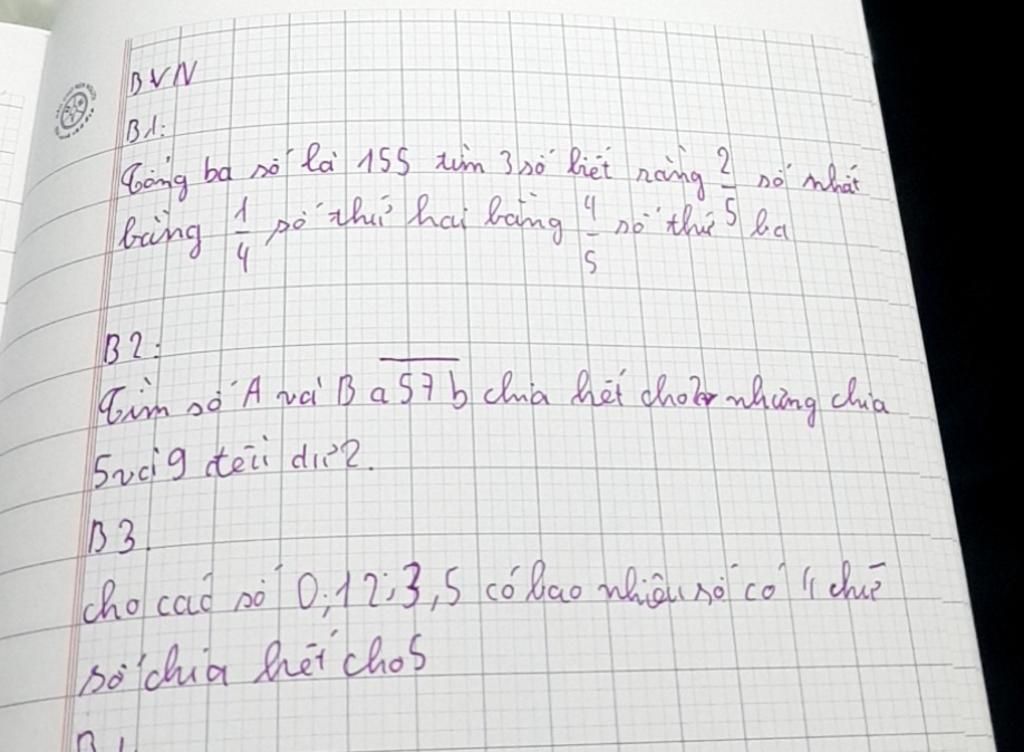 BVN
B1:
Tổng ba số là 155 tìm 3 số biết rằng 2/5 số nhất
bằng 1/4 số thứ hai bằng 4/5 số thứ ba
B2:
Tìm số A và B a57b chia hết cho nhưng chia
5 và 9 đều dư 2.
B3
cho các số 0;12;3,5 có bao nhiêu số có 4 chữ
số chia hết cho 5